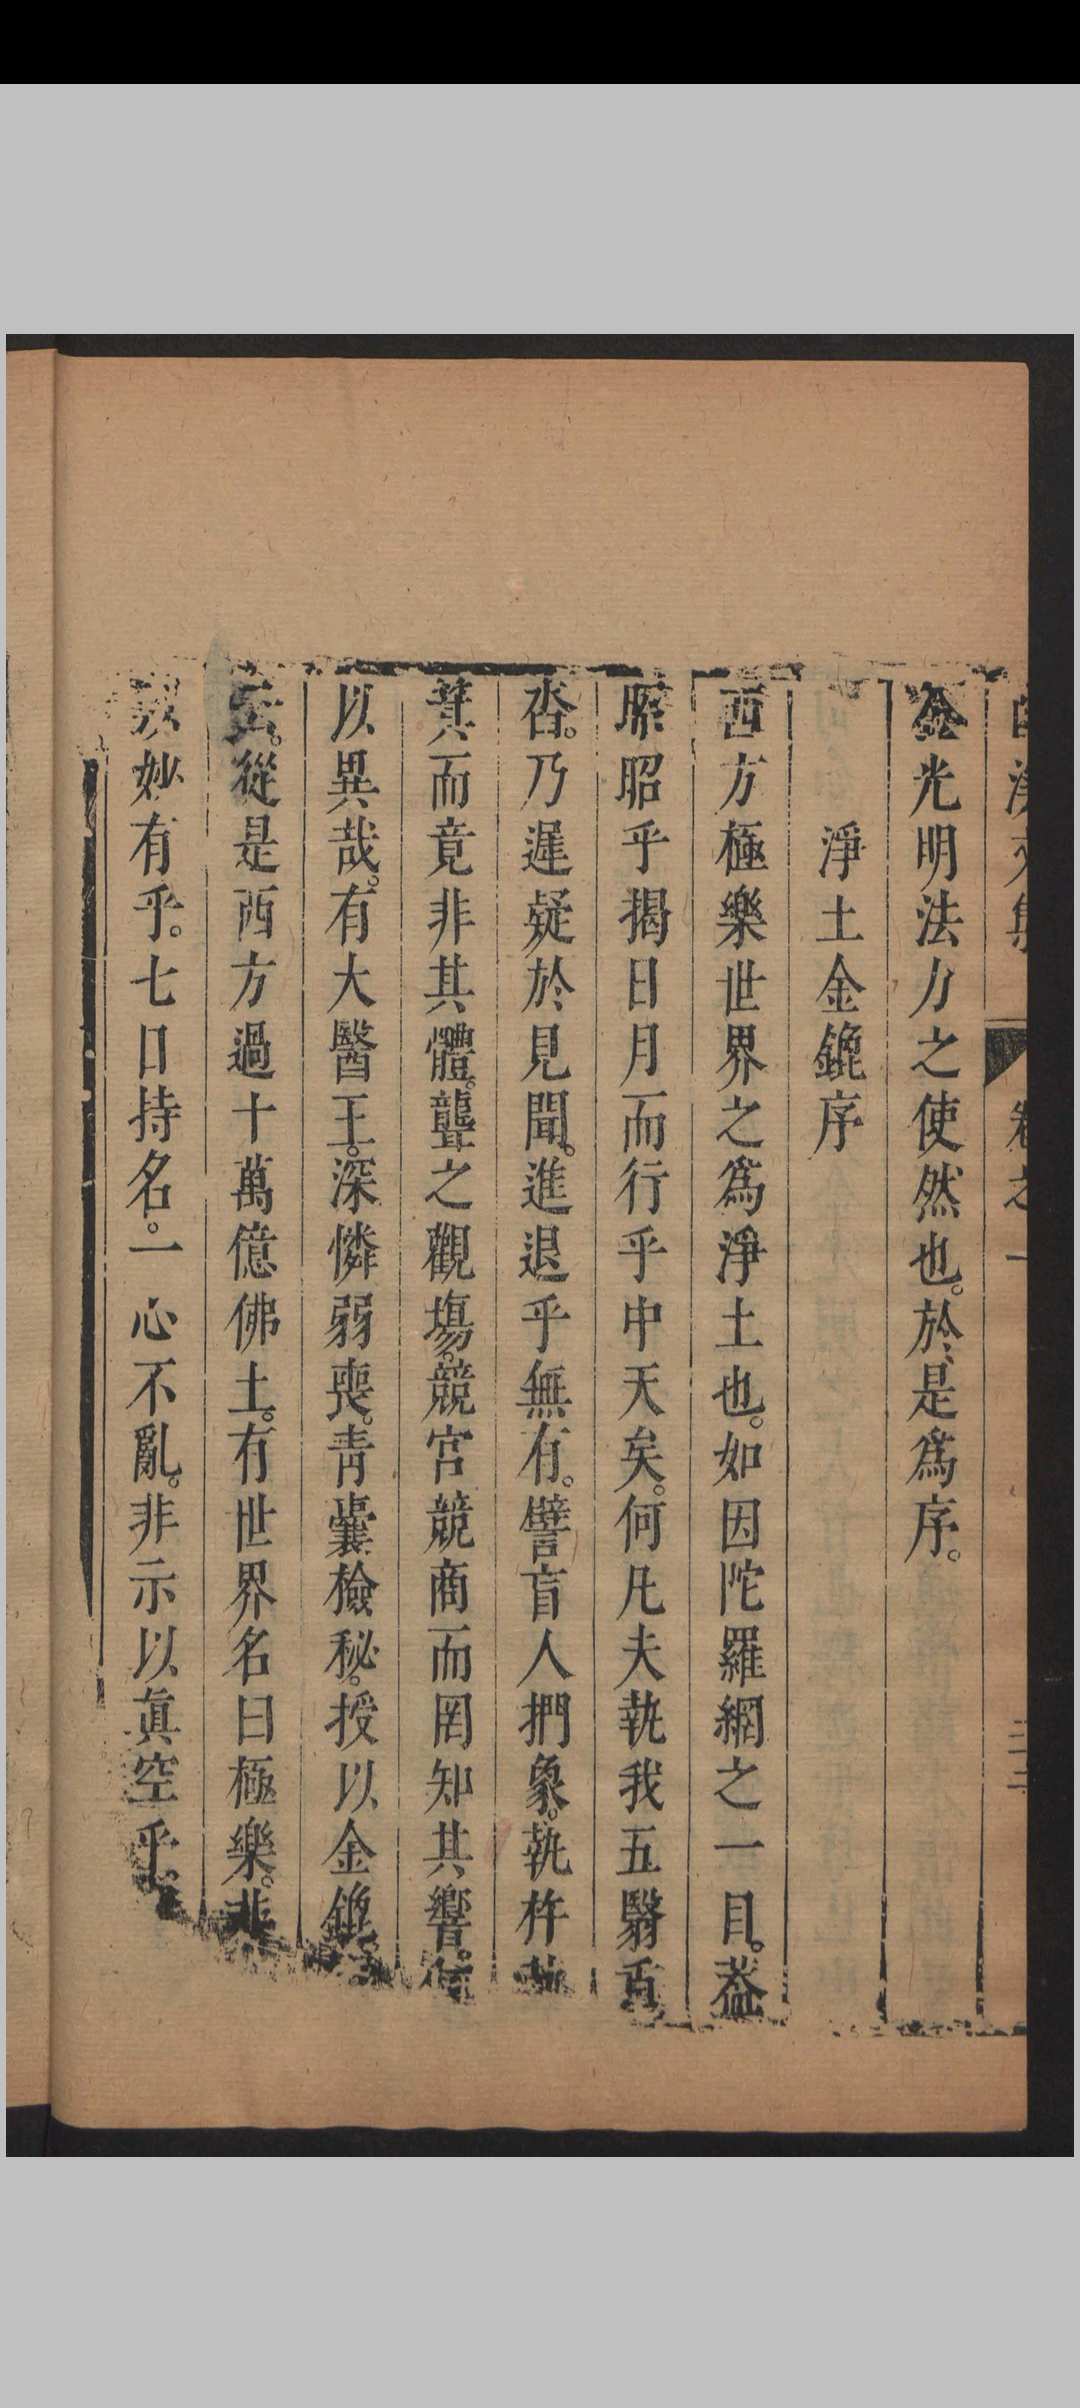 卷之一
金光明法力之使然也。於是爲序。
淨土金鎞序
西方極樂世界之爲淨土也。如因陀羅網之一目。葢
昭昭乎揭日月而行乎中天矣。何凡夫執我五翳
沓。乃遲疑於見聞。進退乎無有。譬盲人捫象。執杵
箕而竟非其體。聾之觀塲。競宮競商而罔知其響。何
以異哉。有大醫王。深憐弱喪。靑囊檢秘。授以金鎞。
云。從是西方過十萬億佛土。有世界名曰極樂。非
以妙有乎。七日持名。一心不亂。非示以眞空乎。